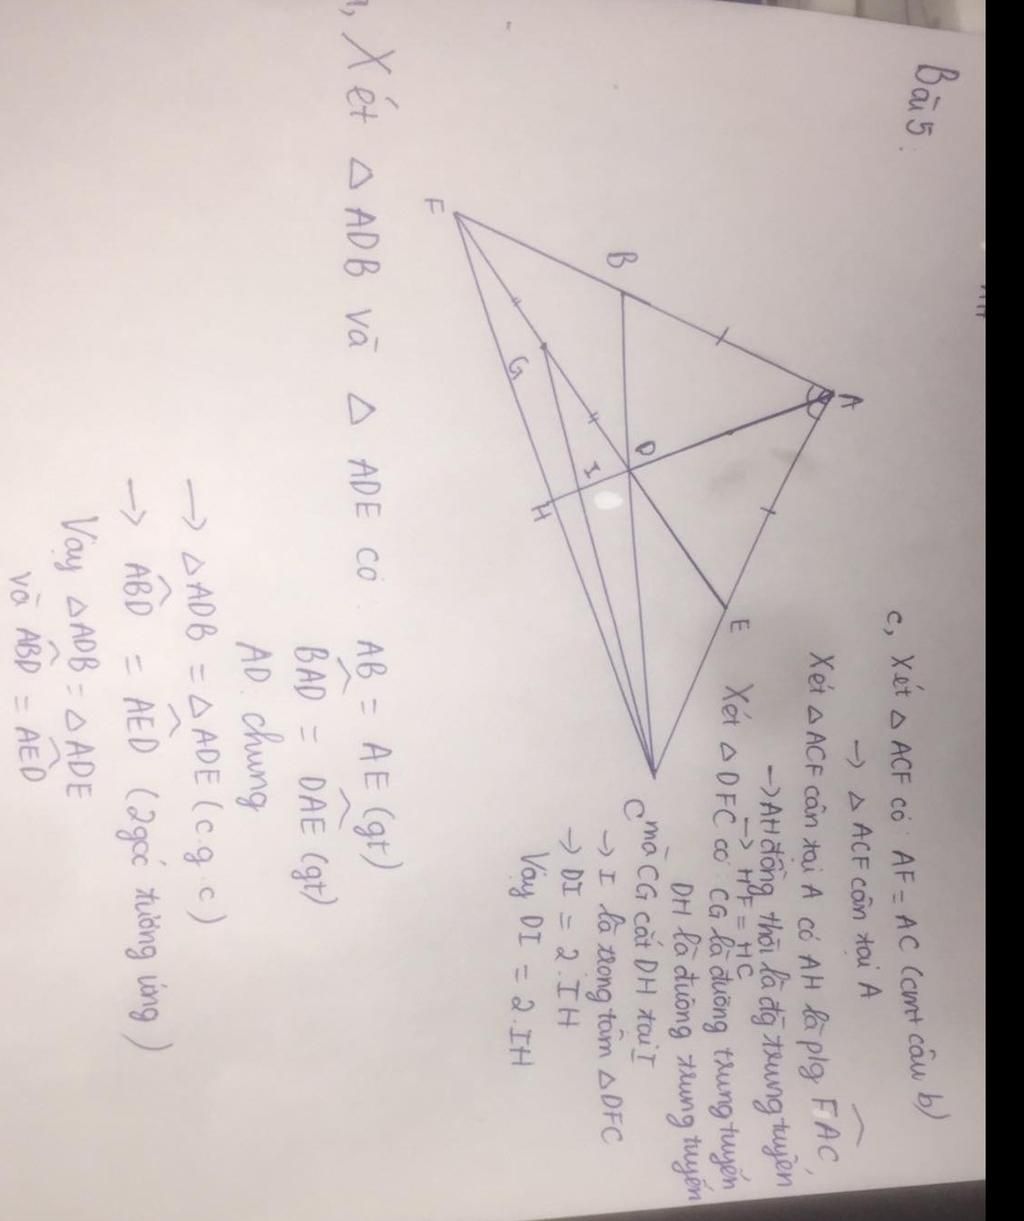 Bài 5:
A
B
D
E
F
G
I
H
C
c, Xét △ ACF có: AF = AC (cmt câu b)
→ △ ACF cân tại A
Xét △ACF cân tại A có AH là p/g FAC,
→ AH đồng thời là đg trung tuyến
→ HF = HC
Xét △ DFC có: CG là đường trung tuyến
DH là đường trung tuyến
mà CG cắt DH tại I
→ I là trọng tâm △DFC
→ DI = 2.IH
Vậy DI = 2.IH
, Xét △ ADB và △ ADE có: AB = AE (gt)
BAD = DAE (gt)
AD chung
→ △ADB = △ADE (c.g.c)
→ ABD = AED (2 góc tương ứng)
Vậy △ADB = △ADE
và ABD = AED